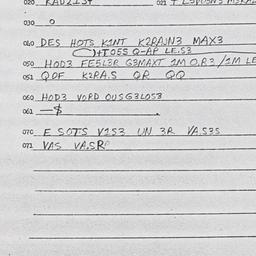 020 KAD2134 021
030 O
040 DES HOTS KINT K2RAJN3 MAX3
)+TOSS Q-AP LE.S3
050 HOD3 FE5L3R G3MAXT 1M O.R3 / 1M LE
051 QOF K2RA.S QR QQ
060 HOD3 VORD OUSG3LOS3
061 —$
070 E SOTS V1S3 UN 3R VA.S3S
071 VAS VA.SR